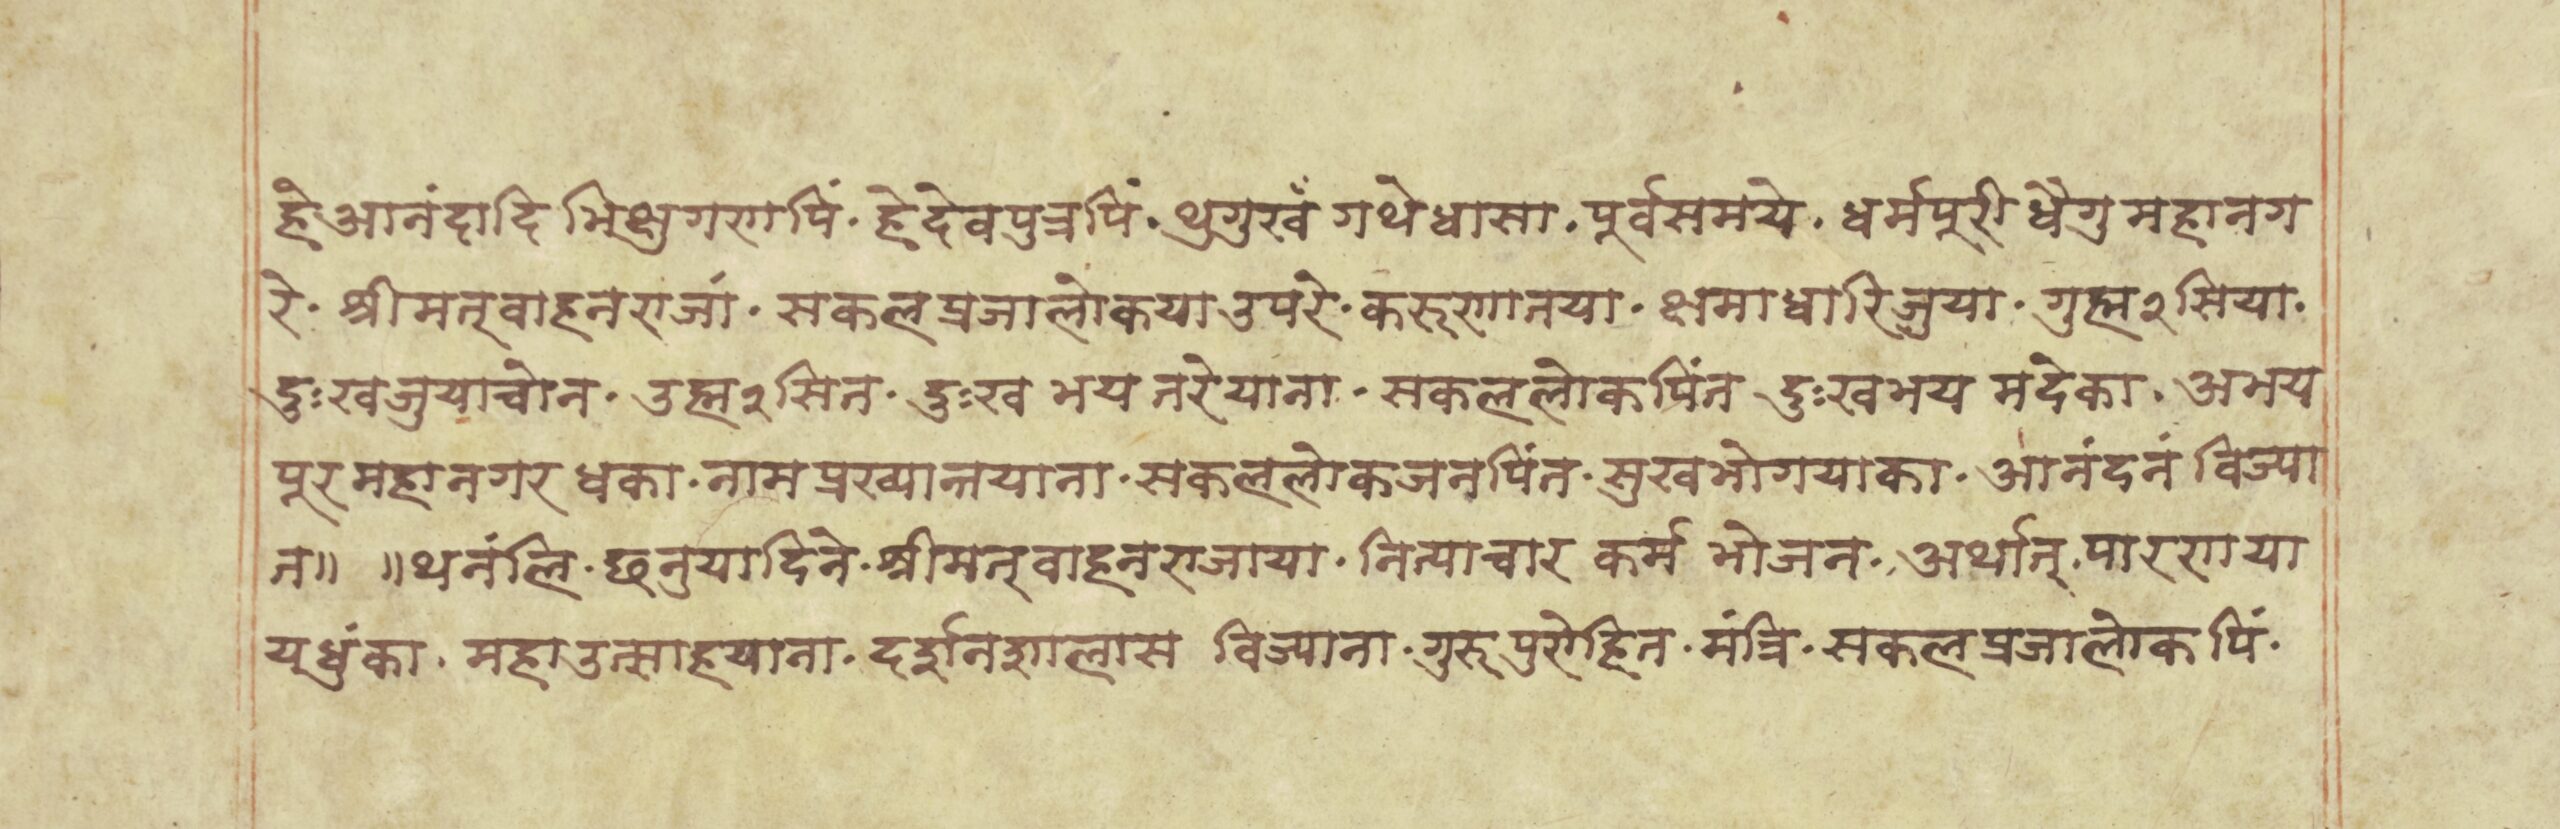 हे आनंदादि भिक्षुगणपिं· हे देवपुत्रपिं· थुगुखँ गथेधासा· पूर्वसमये· धर्मपूरी धैगु महानग
रे· श्रीमत्वाहनराजां· सकलप्रजालोकया उपरे· करूणातया· क्षमाधारिजुया· गुह्म२सिया·
दुःखजुयाचोन· उह्म२सित· दुःख भय तरेयाना· सकललोकपिंत दुःखभय मदेका· अभय
पूर महानगर धका· नाम प्रख्यातयाना· सकललोकजनपिंत· सुखभोगयाका· आनंदनं विज्या
त॥ ॥थनंलि· छन्हुयादिने· श्रीमत्वाहनराजाया· नित्याचार कर्म भोजन· अर्थात्· पारणया
यधुंका· महाउत्साहयाना· दर्शनशालास विज्याना· गुरूपुरोहित· मंत्रि· सकलप्रजालोकपिं·